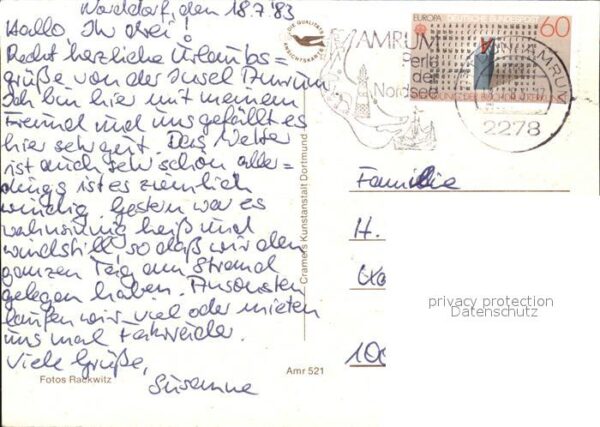 Norddorf, den 18.7.83
Hallo, Ihr drei!
Recht herzliche Urlaubs=
grüße von der Insel Amrum.
Ich bin hier mit meinem
Freund und uns gefällt es
hier sehr gut. Das Wetter
ist auch sehr schön aller=
dings ist es ziemlich
windig. Gestern war es
wahnsinnig heiß und
windstill so daß wir den
ganzen Tag am Strand
gelegen haben. Ansonsten
laufen wir viel oder mieten
uns mal Fahrräder.
Viele Grüße,
Susanne
Fotos Rackwitz
Amr 521
Cramers Kunstanstalt Dortmund
DIE QUALITÄTS
ANSICHTSKARTE
AMRUM
Perle
der
Nordsee
EUROPA DEUTSCHE BUNDESPOST
60
AMRUM
2278
Familie
H.
100
privacy protection
Datenschutz